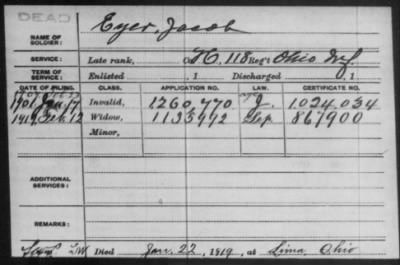 DEAD
NAME OF SOLDIER: Eyer, Jacob
SERVICE: Late rank, Co H, 118 Reg't Ohio Inf
TERM OF SERVICE: Enlisted , 1 Discharged , 1
DATE OF FILING. CLASS. APPLICATION NO. LAW. CERTIFICATE NO.
1901 Jan 7 Invalid, 1260,770 J. 1.024.034
1919 Feb 12 Widow, 1135992 867900
Minor,
ADDITIONAL SERVICES:
REMARKS:
Died Jan. 22, 1919, at Lima, Ohio